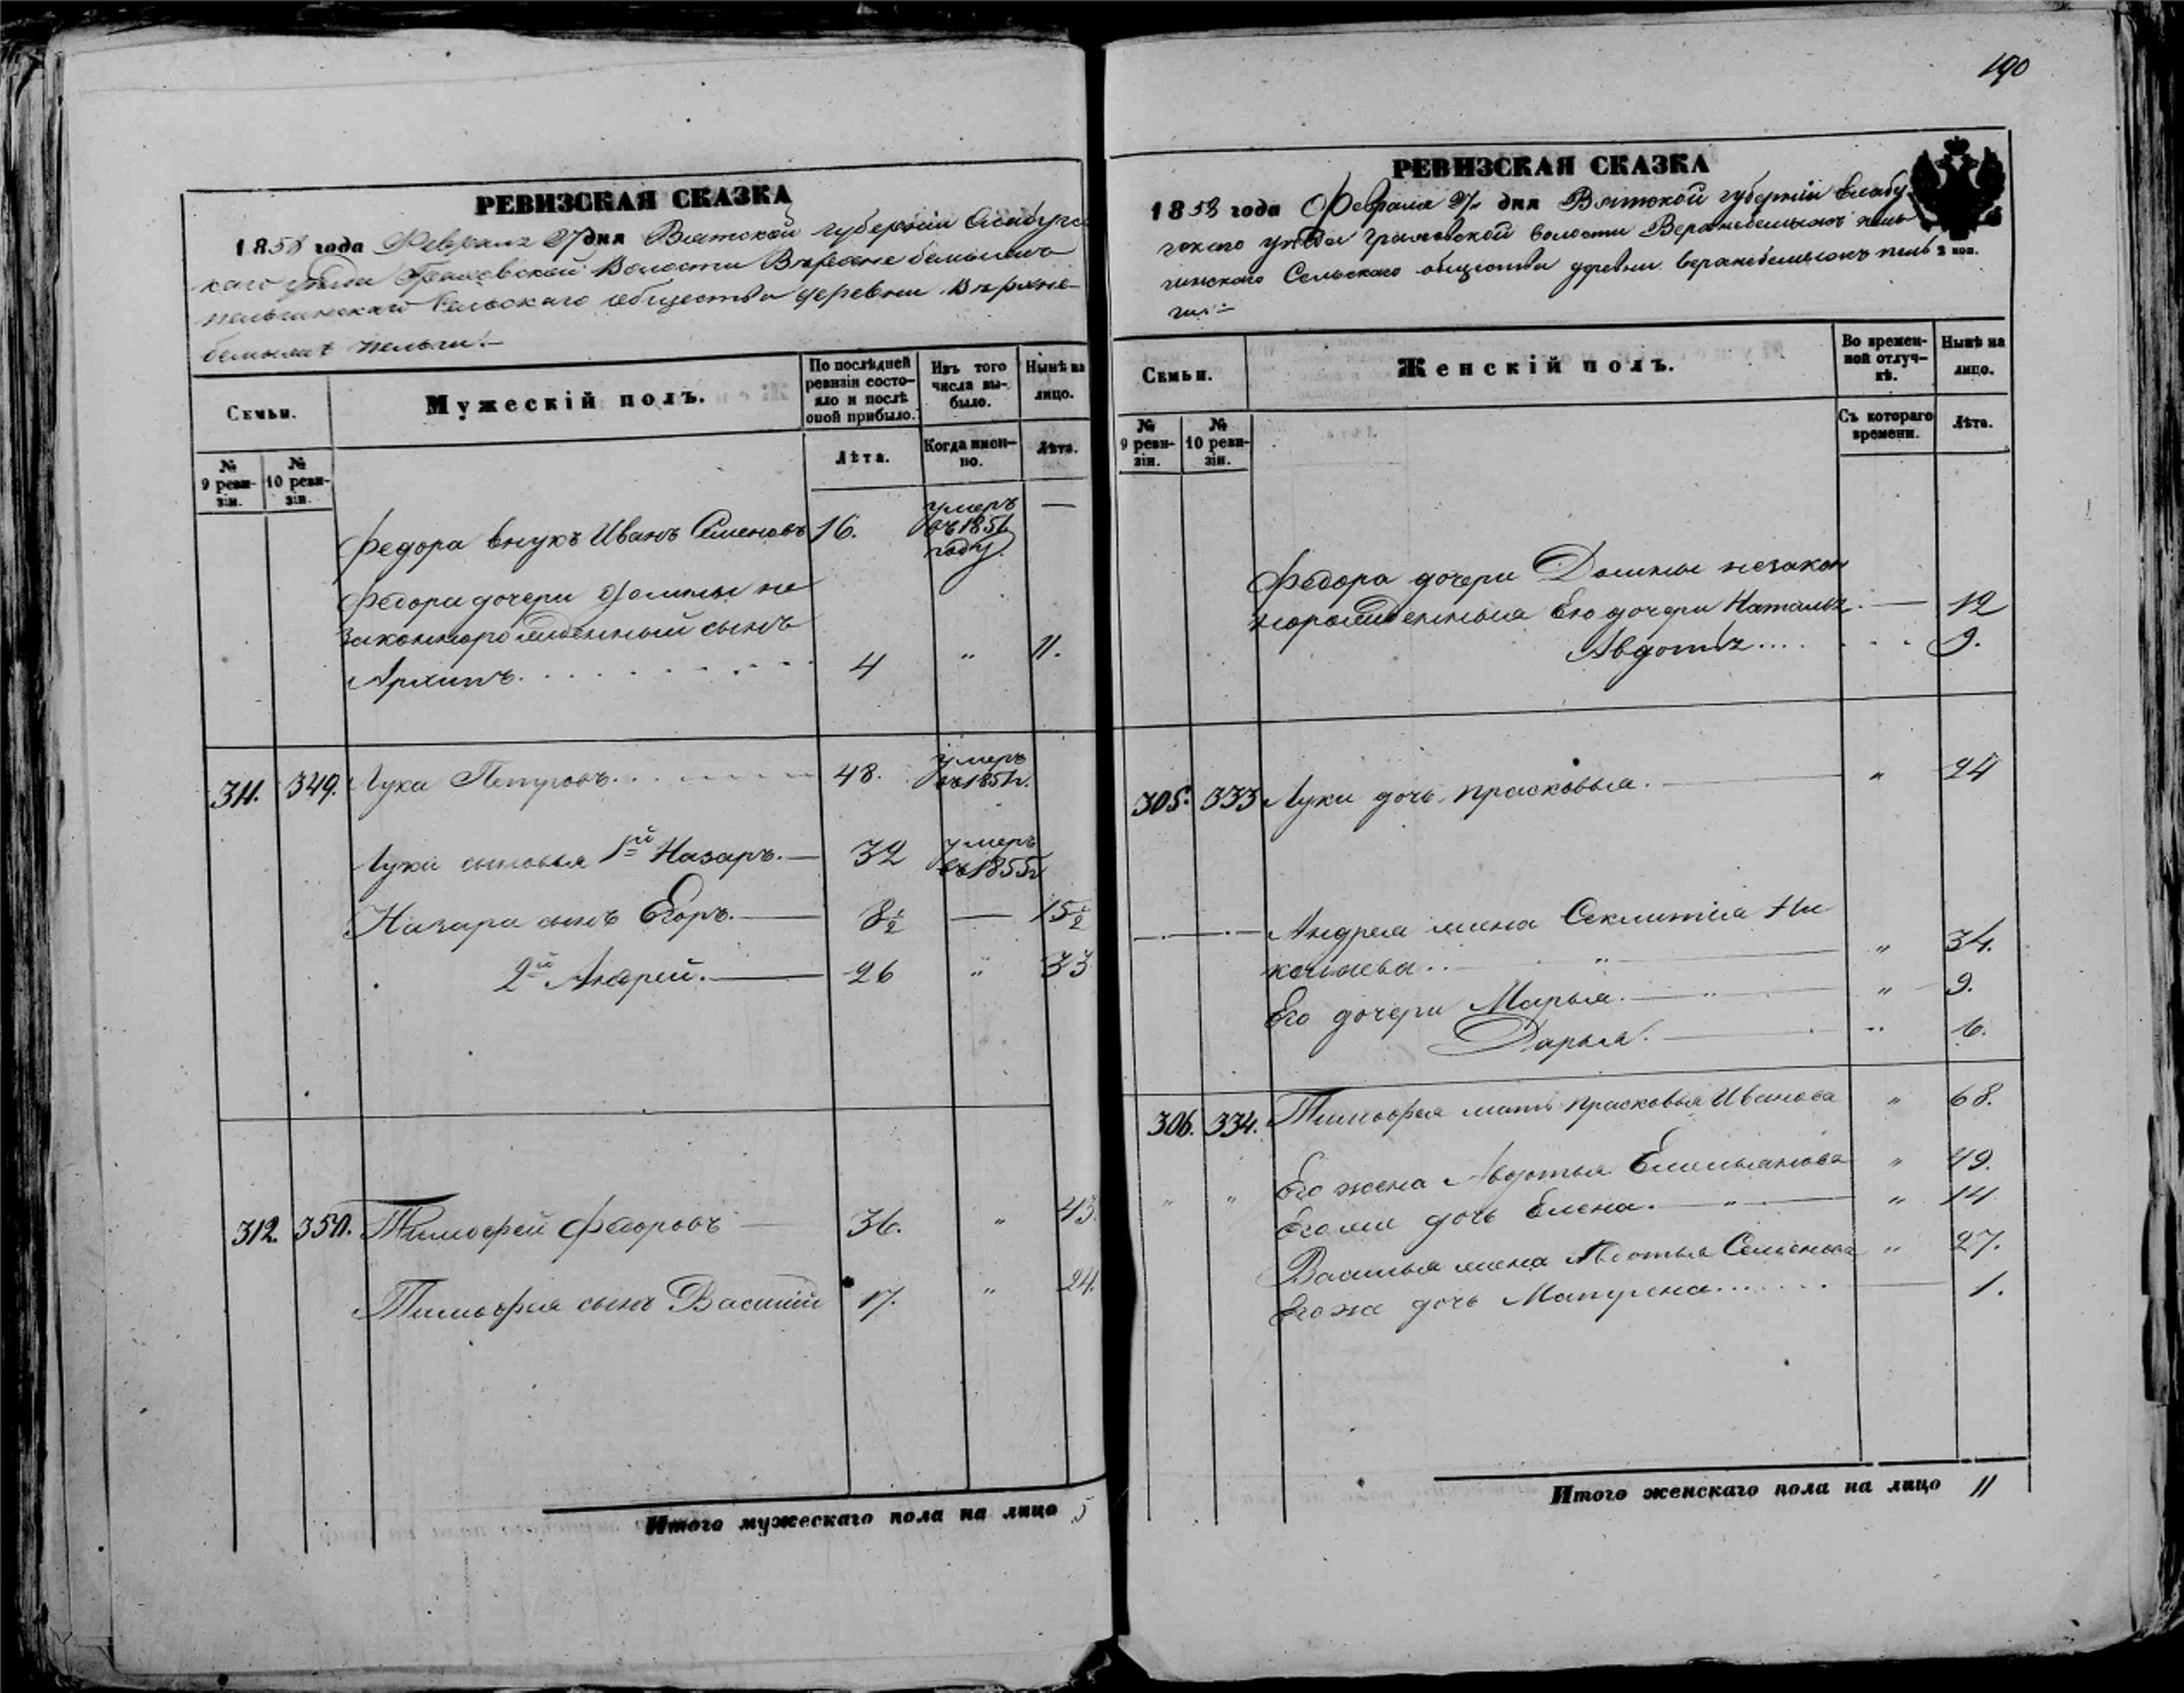 190
РЕВИЗСКАЯ СКАЗКА
1858 года Февраля 27 дня Вятской губернiи Елабужс
каго уѣзда Граховской Волости
Сельскаго общества деревни Верхне
РЕВИЗСКАЯ СКАЗКА
1858 года Февраля 27 дня Вятской губернiи Елабу
уѣзда Граховской волости
Сельскаго общества деревни
2 коп.
Семьи.
Мужескiй полъ.
По послѣдней ревизiи состояло и послѣ оной прибыло.
Изъ того числа выбыло.
Нынѣ на лицо.
№ 9 ревизiи.
№ 10 ревизiи.
Лѣта.
Когда имянно.
Лѣта.
Федора внукъ Иванъ Семеновъ 16. умеръ въ 1851 году. —
Федора дочери Домны не
законнорожденный сынъ
Архипъ. 4 " 11.
311. 349. Лука Петровъ. 48. умеръ
Луки сыновья 1й Назаръ. — 32 умеръ въ 1855г
Назара сынъ Егоръ. — 8½ — 15½
2й Андрей. — 26 " 33
312. 350. Тимофей Федоровъ — 36. " 43.
Тимофея сынъ Василiй 17. " 24.
Итого мужескаго пола на лицо 5
Семьи.
Женскiй полъ.
Во временной отлучкѣ.
Нынѣ на лицо.
№ 9 ревизiи.
№ 10 ревизiи.
Съ котораго времени.
Лѣта.
Федора дочери Домны незакон
норожденныя Ею дочери Наталья. — 12
Авдотья.... 9.
305. 333 Луки дочь Прасковья. — " 24
Андрея жена Секлитiя Ни
" 34.
Его дочери Марья. — " 9.
Дарья. — " 6.
306. 334. Тимофея мать Прасковья Иванова " 68.
" " Его жена Авдотья Емельянова " 49.
Его же дочь Елена. — " 14
Василья жена Авдотья Семенова " 27.
Его же дочь Матрена....... — 1.
Итого женскаго пола на лицо 11